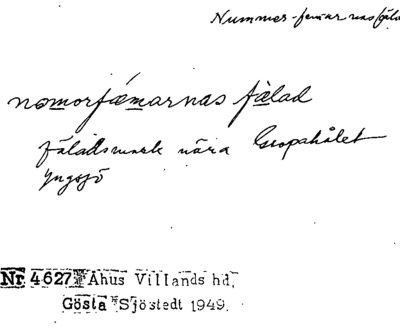 Nummer-femar nas fäla
nomorfæmarnas fälad
fäladsmark nära Gropahålet
Yngsjö
Nr 4627 Åhus Villands hd.
Gösta Sjöstedt 1949.